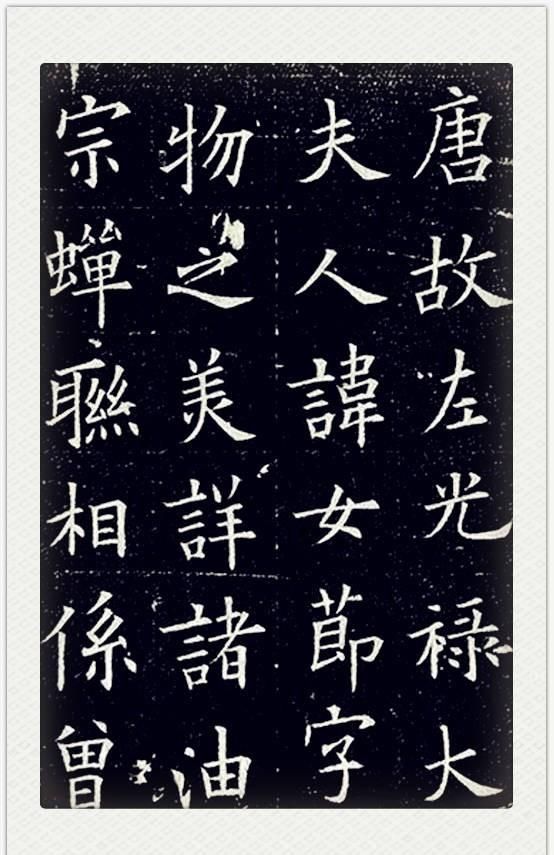 唐故左光禄大
夫人諱女節字
物之美詳諸油
宗蟬聯相係曾